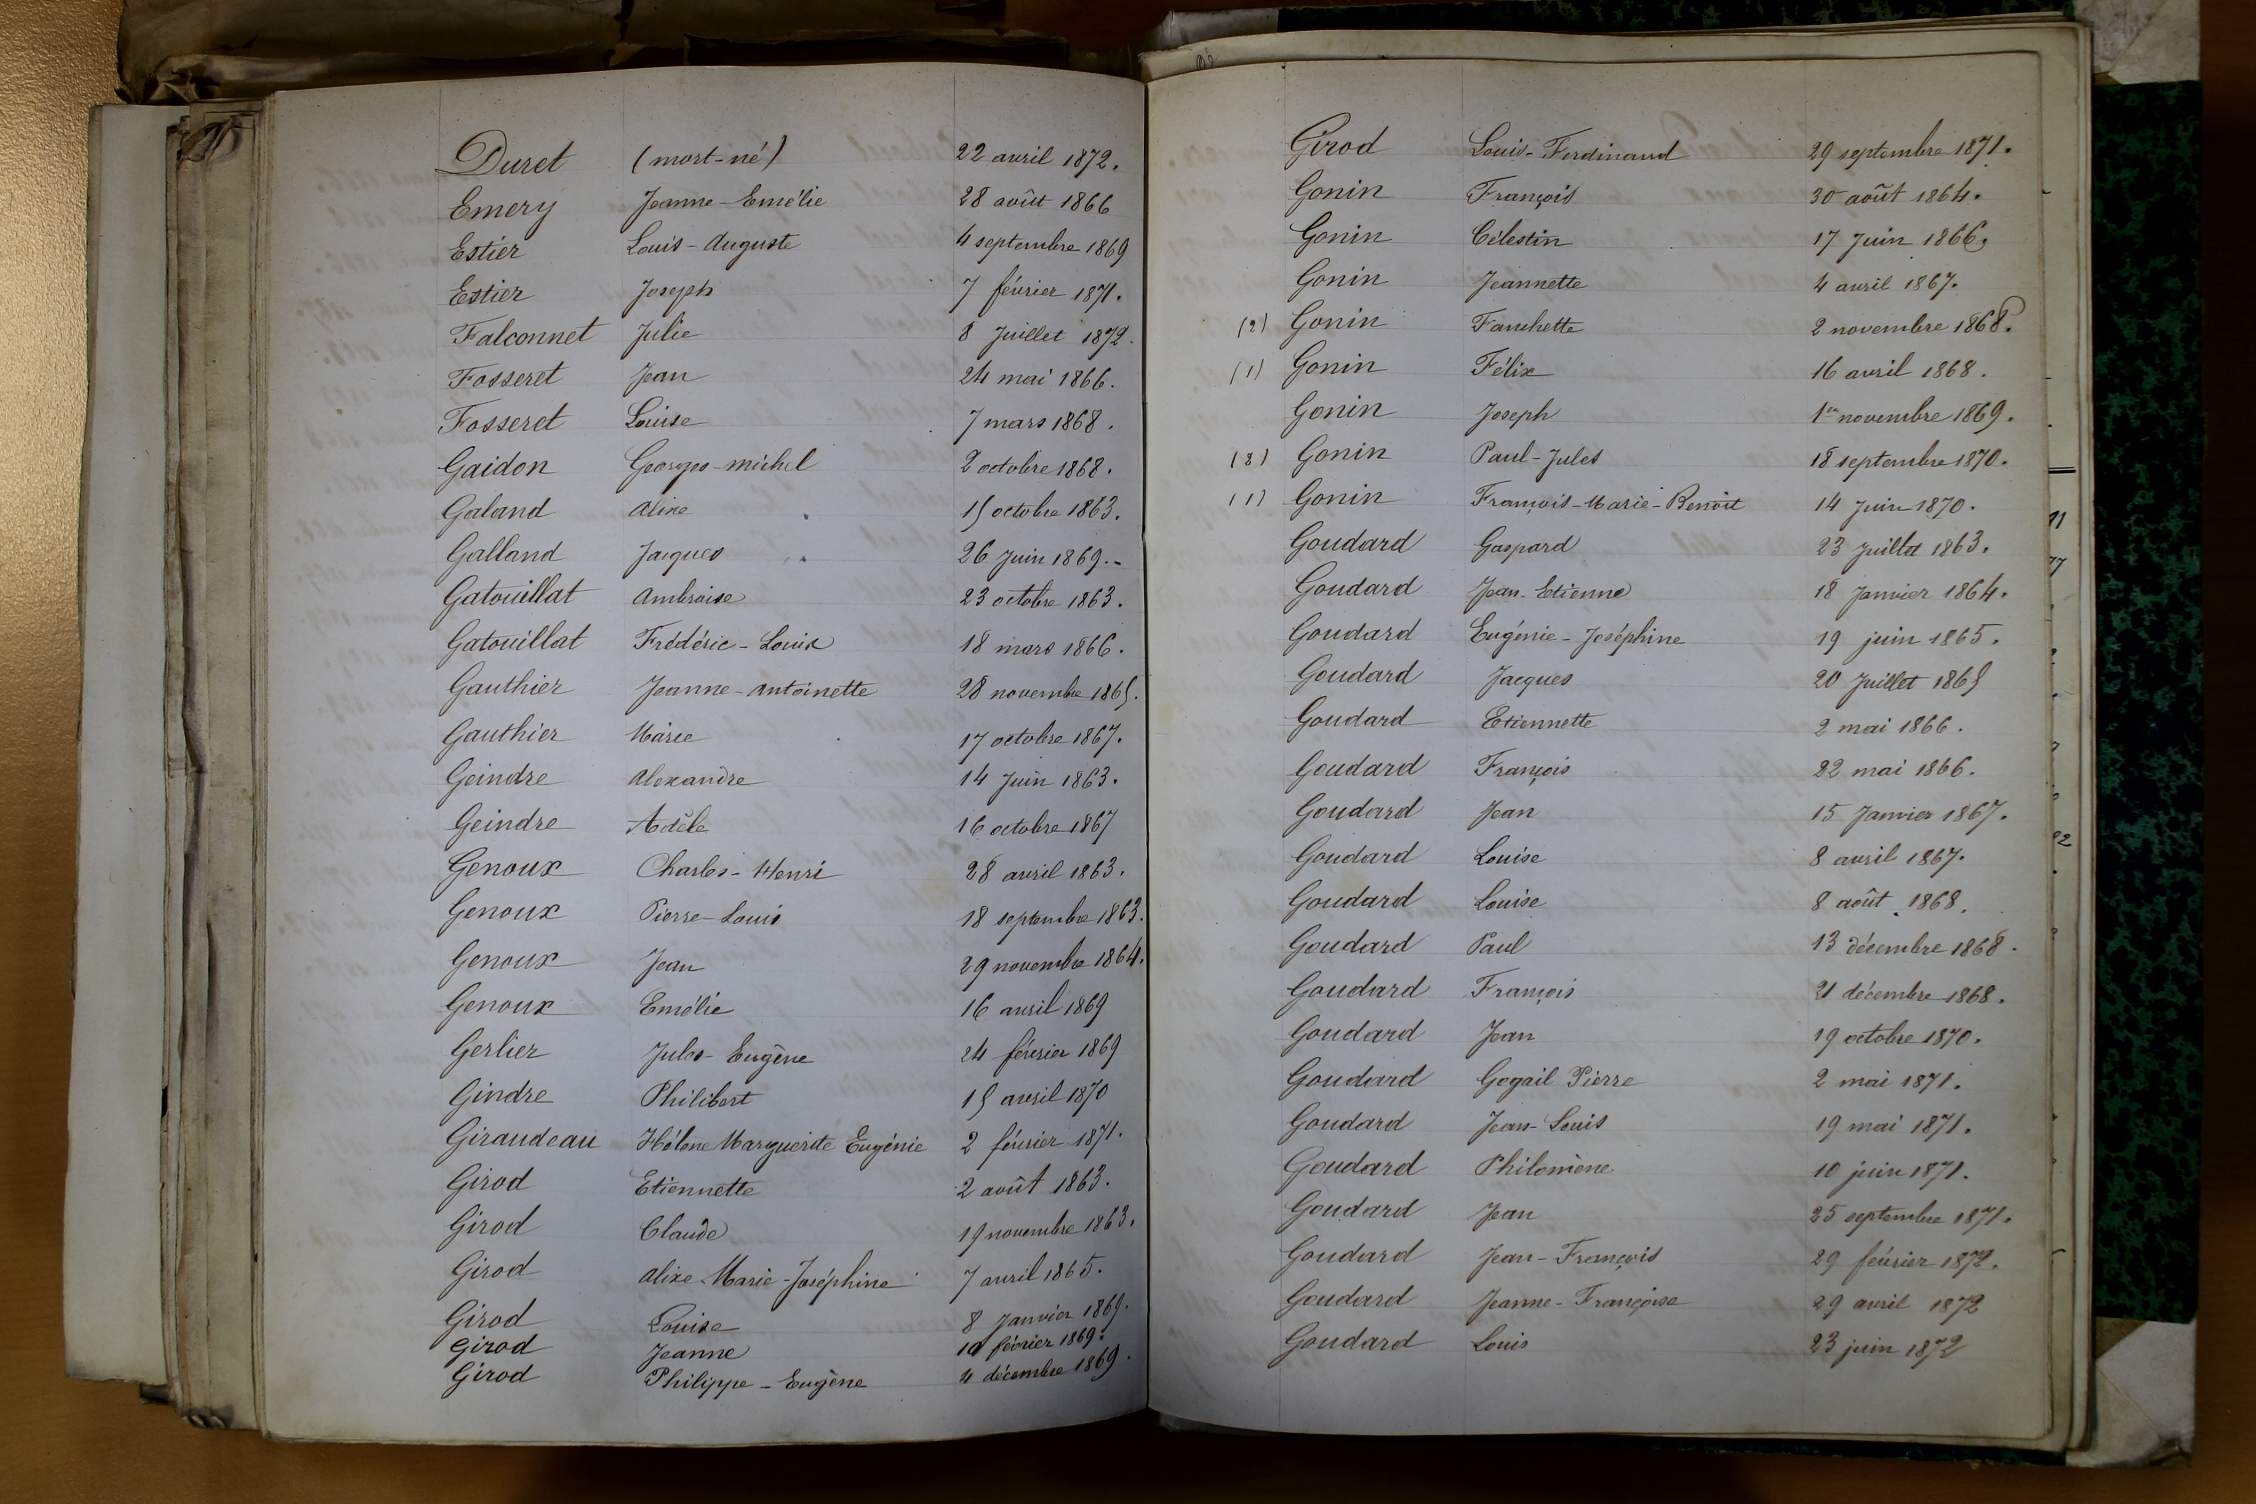 Duret (mort-né) 22 avril 1872.
Emery Jeanne-Emélie 28 août 1866
Estier Louis-Auguste 4 septembre 1869
Estier Joseph 7 février 1871.
Falconnet Julie 8 Juillet 1872.
Fosseret Jean 24 mai 1866.
Fosseret Louise 7 mars 1868.
Gaidon Georges-Michel 2 octobre 1868.
Galand Alixe 15 octobre 1863.
Galland Jacques 26 Juin 1869.
Gatouillat Ambroise 23 octobre 1863.
Gatouillat Frédéric-Louis 18 mars 1866.
Gauthier Jeanne-Antoinette 28 novembre 1865.
Gauthier Marie 17 octobre 1867.
Geindre Alexandre 14 Juin 1863.
Geindre Adèle 16 octobre 1867
Genoux Charles-Henri 28 avril 1863.
Genoux Pierre-Louis 18 septembre 1863.
Genoux Jean 29 novembre 1864.
Genoux Emélie 16 avril 1869
Gerlier Jules-Eugène 24 février 1869
Gindre Philibert 15 avril 1870
Giraudeau Hélène Marguerite Eugénie 2 février 1871.
Girod Etiennette 2 août 1863.
Girod Claude 19 novembre 1863.
Girod Alixe-Marie-Joséphine 7 avril 1865.
Girod Louise 8 Janvier 1869.
Girod Jeanne février 1869.
Girod Philippe-Eugène 4 décembre 1869.
Girod Louis-Ferdinand 29 septembre 1871.
Gonin François 30 août 1864.
Gonin Célestin 17 Juin 1866.
Gonin Jeannette 4 avril 1867.
(2) Gonin Fanchette 2 novembre 1868.
(1) Gonin Félix 16 avril 1868.
Gonin Joseph 1er novembre 1869.
(2) Gonin Paul-Jules 18 septembre 1870.
(1) Gonin François-Marie-Benoit 14 Juin 1870.
Goudard Gaspard 23 Juillet 1863.
Goudard Jean-Etienne 18 Janvier 1864.
Goudard Eugénie-Joséphine 19 juin 1865.
Goudard Jacques 20 Juillet 1865
Goudard Etiennette 2 mai 1866.
Goudard François 22 mai 1866.
Goudard Jean 15 Janvier 1867.
Goudard Louise 8 avril 1867.
Goudard Louise 8 août 1868.
Goudard Paul 13 décembre 1868.
Goudard François 21 décembre 1868.
Goudard Jean 19 octobre 1870.
Goudard Gogail Pierre 2 mai 1871.
Goudard Jean-Louis 19 mai 1871.
Goudard Philomène 10 juin 1871.
Goudard Jean 25 septembre 1871.
Goudard Jean-François 29 février 1872.
Goudard Jeanne-Françoise 29 avril 1872
Goudard Louis 23 juin 1872